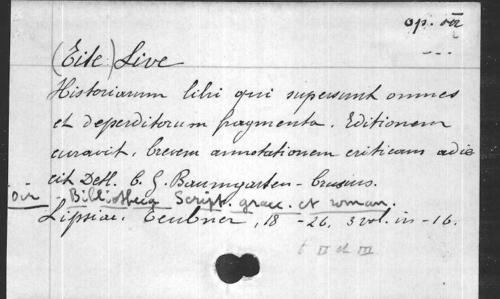 op. VII
(Tite) Live
Historiarum libri qui supersunt omnes
et deperditorum fragmenta. Editionem
curavit, brevem annotationem criticam adie
cit Detl. C. G. Baumgarten-Crusius.
Voir Bibliotheca Script. graec. et roman.
Lipsiae, Teubner, 18 -26, 3 vol. in-16.
t II et III